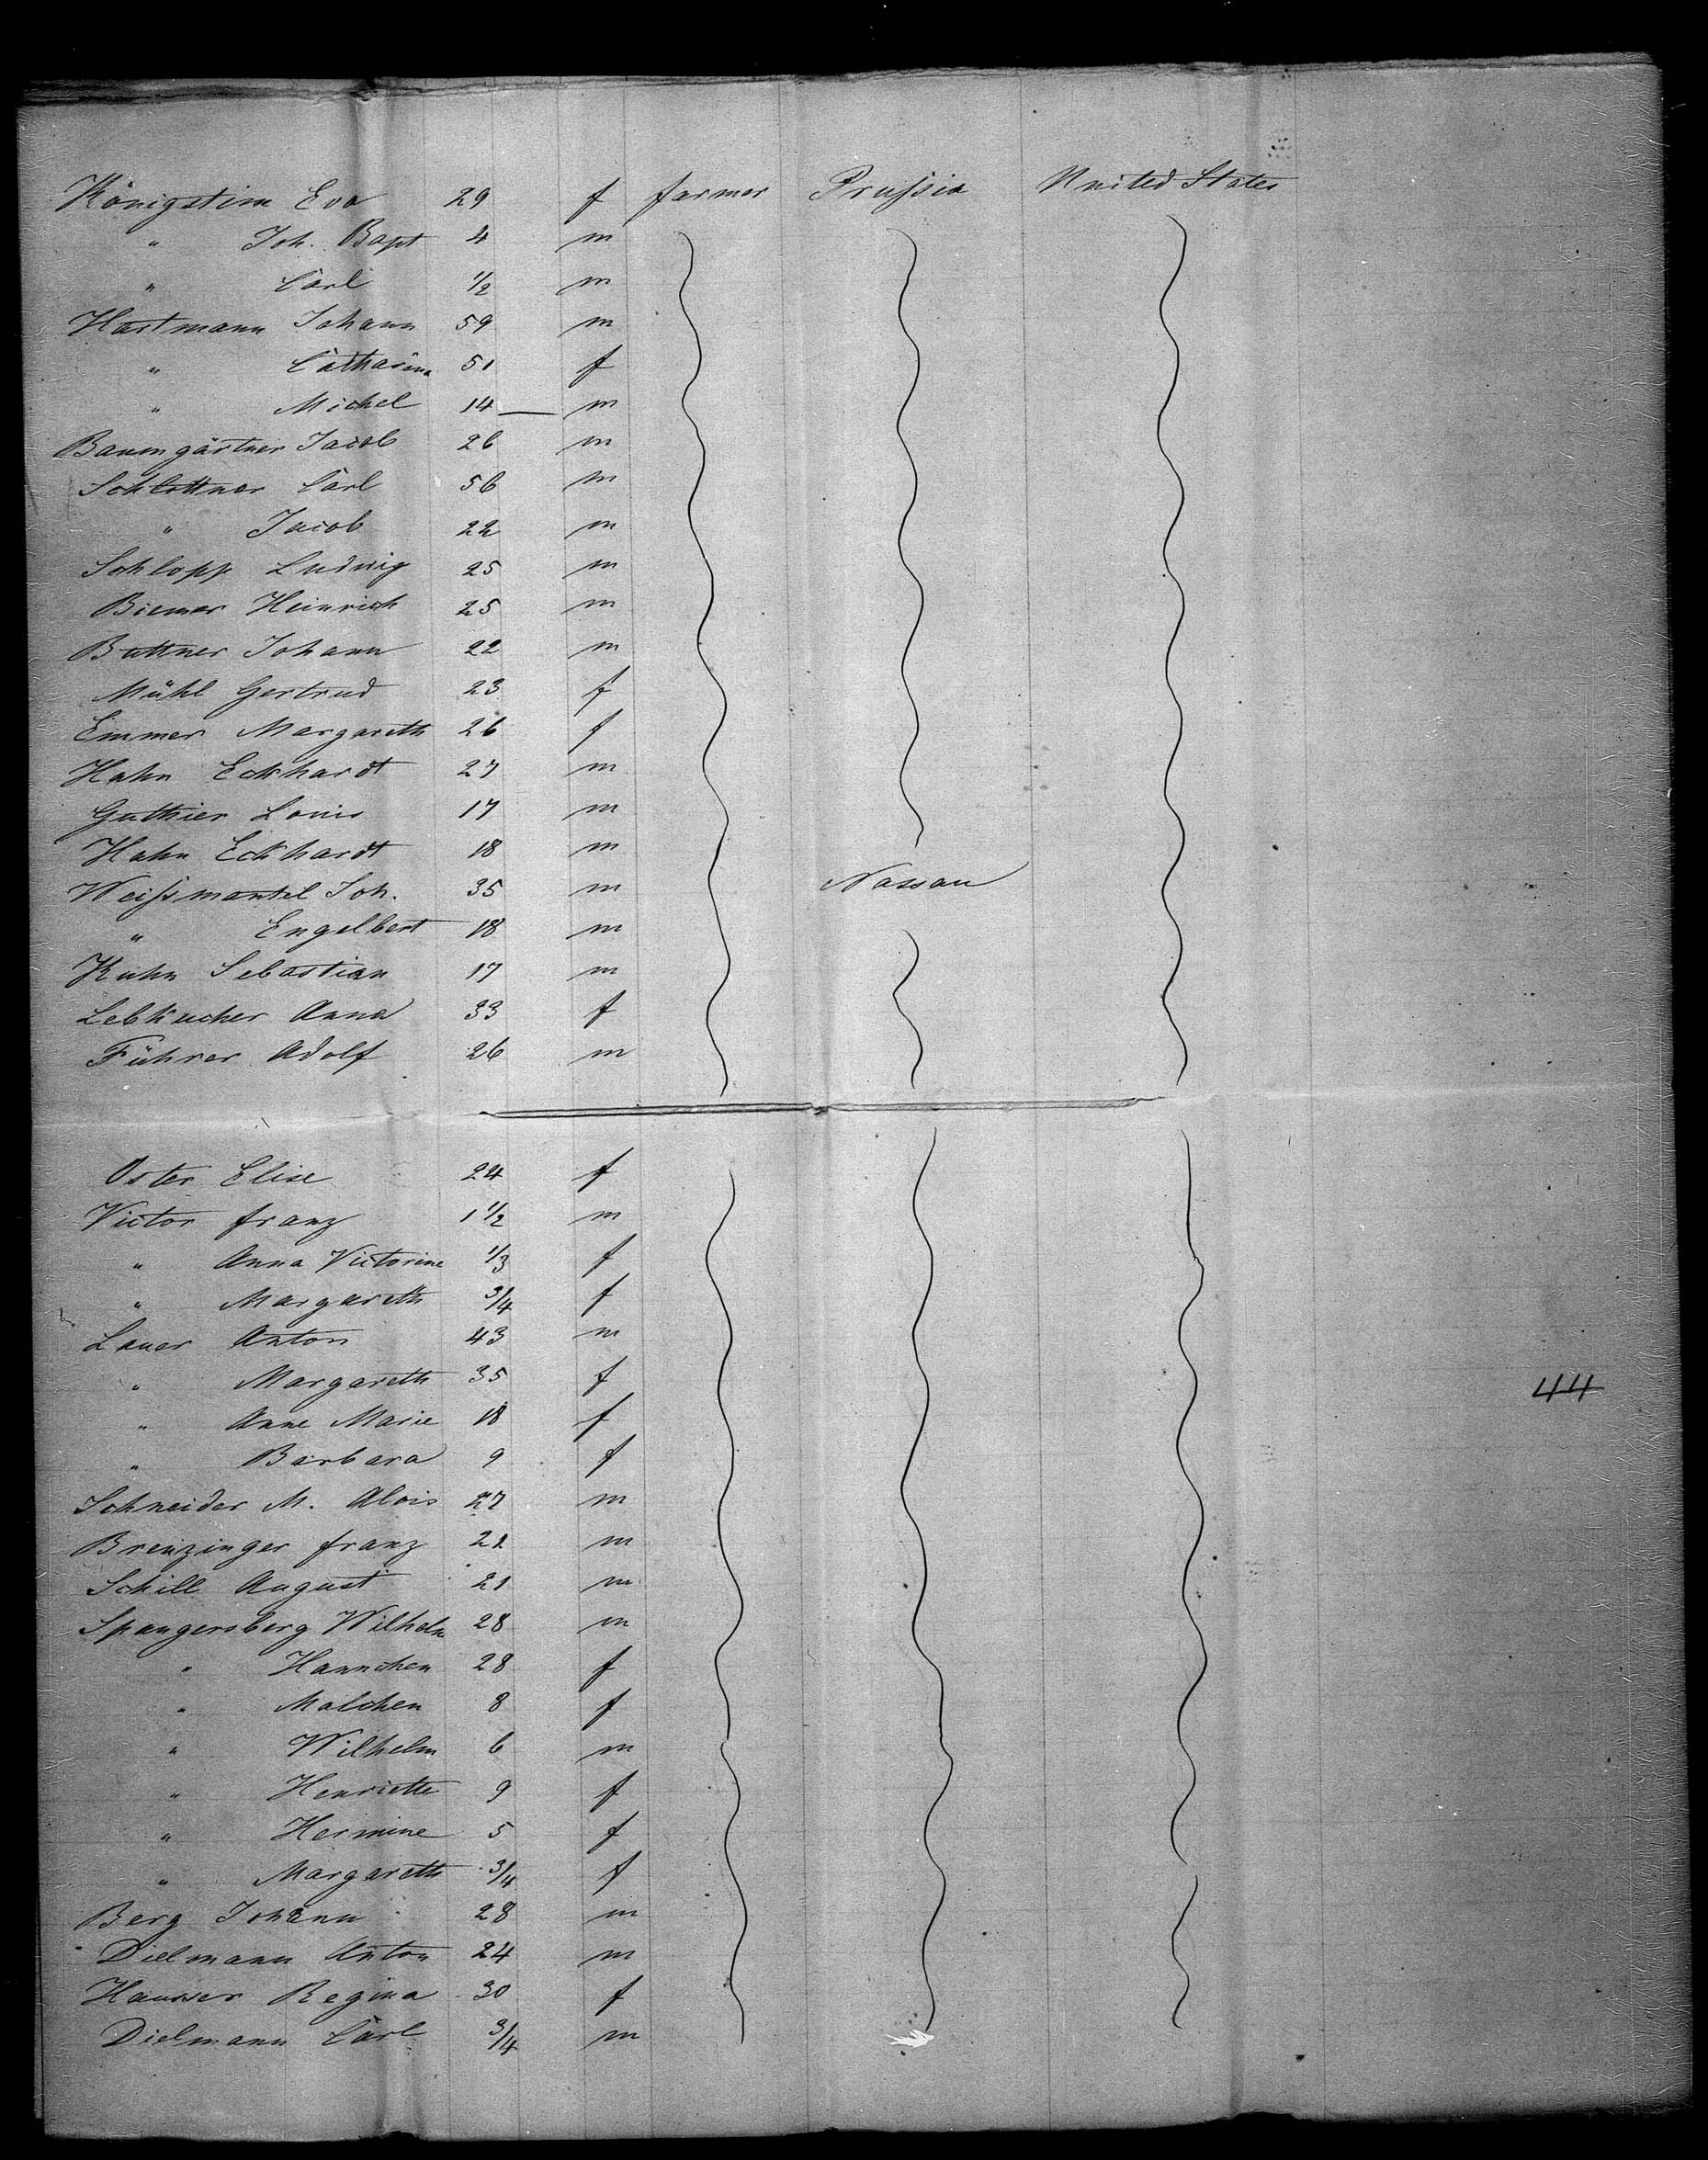 Königstein Eva 29 f farmer Prussia United States
" Joh. Bapt 4 m
" Carl 1/2 m
Hartmann Johann 59 m
" Catharina 51 f
" Michel 14 — m
Baumgärtner Jacob 26 m
Schlottner Carl 56 m
" Jacob 22 m
Schlopp Ludwig 25 m
Biemer Heinrich 25 m
Buttner Johann 22 m
Mühl Gertrud 23 f
Emmer Margareth 26 f
Hahn Eckhardt 27 m
Guthier Louis 17 m
Hahn Eckhardt 18 m
Weissmantel Joh. 35 m Nassau
" Engelbert 18 m
Kuhn Sebastian 17 m
Lebkucher Anna 33 f
Führer Adolf 26 m
Oster Elise 24 f
Victor franz 1 1/2 m
" Anna Victorine 1/3 f
" Margareth 3/4 f
Lauer Anton 43 m
" Margareth 35 f
44
" Anne Marie 18 f
" Barbara 9 f
Schneider M. Alois 27 m
Brenzinger franz 21 m
Schill August 21 m
Spangersberg Wilhelm 28 m
" Hannchen 28 f
" Malchen 8 f
" Wilhelm 6 m
" Henriette 9 f
" Hermine 5 f
" Margareth 3/4 f
Berg Johann 28 m
Dielmann Anton 24 m
Hausser Regina 30 f
Dielmann Carl 3/4 m